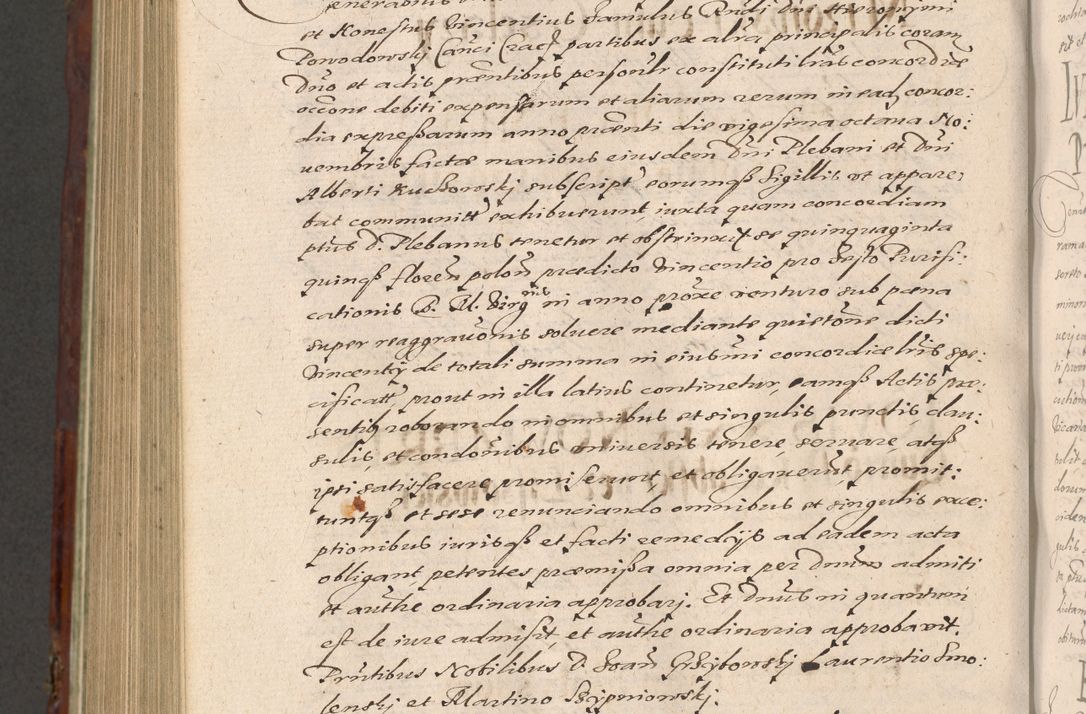 et Honestus Vincentius famulus Rndi Dni Hieronymi
Powodowskj Canci Crac partibus ex altra principalis coram
Dno et actis prntibus personlr constituti lras concordiæ
occone debiti expensarum et aliarum rerum in eadz concor:
dia expressarum anno prænti die vigesima octaua No:
uembris factæ manibus eiusdem Dni Plebani et Dni
Alberti Kuchowskj subscript eorumqß sigillis vt appare:
bat communitt exhibuerunt iuxta quam concordiam
ptus D. Plebanus tenetur et obstrinxit se quinquaginta
quinqß floren polon prædicto Vincentio pro festo Purifi:
cationis B. M. Virgnis in anno proxe venturo sub pæna
super reaggrauonis soluere mediante quietone dicti
Vincentij de totali summa in eiusmi concordiæ lris spe:
cificatt, prout in illa latius continetur, eamqß Actis præ:
sentibz roborando in omnibus et singulis punctis, clau:
sulis, et condonibus vniuersis tenere, seruare, atqß
ipsi satisfacere promiserunt et obligauerunt promit:
tuntqß et sese renunciando omnibus et singulis exce:
ptionibus iurisqß et facti remedijs ad eadem acta
obligant, petentes præmissa omnia per Dnum admitti
et authe ordinaria approbarj. Et Dnus in quantum
est de iure admisit, et authe ordinaria approbavit.
Prntibus Nobilibus D. Joan Grzybowskj Laurentio Smo:
lenskj et Martino Szypniowskj.